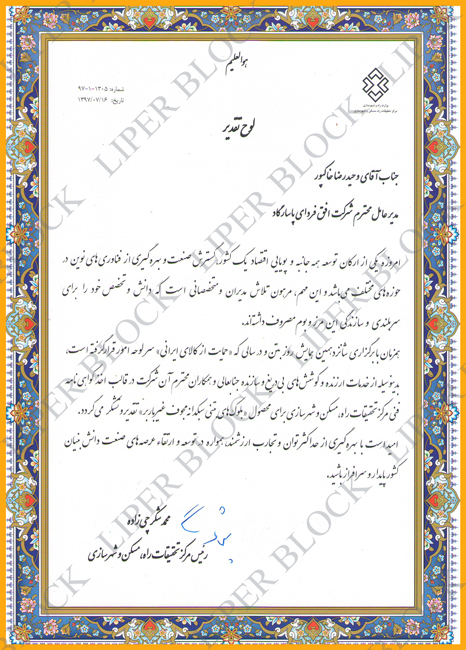 هوالعلیم
شماره: ۹۷-۱-۱۳۰۵
تاریخ: ۱۳۹۷/۰۷/۱۶
وزارت راه و شهرسازی
مرکز تحقیقات راه، مسکن و شهرسازی
لوح تقدیر
جناب آقای وحیدرضا خاکپور
مدیرعامل محترم شرکت افق فردای پاسارگاد
امروزه یکی از ارکان توسعه همه جانبه و پویایی اقتصاد یک کشور، گسترش صنعت و بهره گیری از فناوری های نوین در
حوزه های مختلف می باشد و این مهم، مرهون تلاش مدیران و متخصصانی است که دانش و تخصص خود را برای
سربلندی و سازندگی این مرز و بوم مصروف داشته اند.
همزمان با برگزاری شانزدهمین همایش روز بتن و در سالی که «حمایت از کالای ایرانی» سرلوحه امور قرار گرفته است،
بدینوسیله از خدمات ارزنده و کوشش های بی دریغ و سازنده جنابعالی و همکاران محترم آن شرکت در قالب اخذ گواهی نامه
فنی مرکز تحقیقات راه، مسکن و شهرسازی برای محصول «بلوک های بتنی سبکدانه مجوف غیرباربر» تقدیر و تشکر می گردد.
امید است با بهره گیری از حداکثر توان و تجارب ارزشمند، همواره در توسعه و ارتقاء عرصه های صنعت دانش بنیان
کشور پایدار و سرافراز باشید.
محمد شکرچی زاده
رئیس مرکز تحقیقات راه، مسکن و شهرسازی
LIPER BLOCK LIPER BLOCK LIPER BLOCK